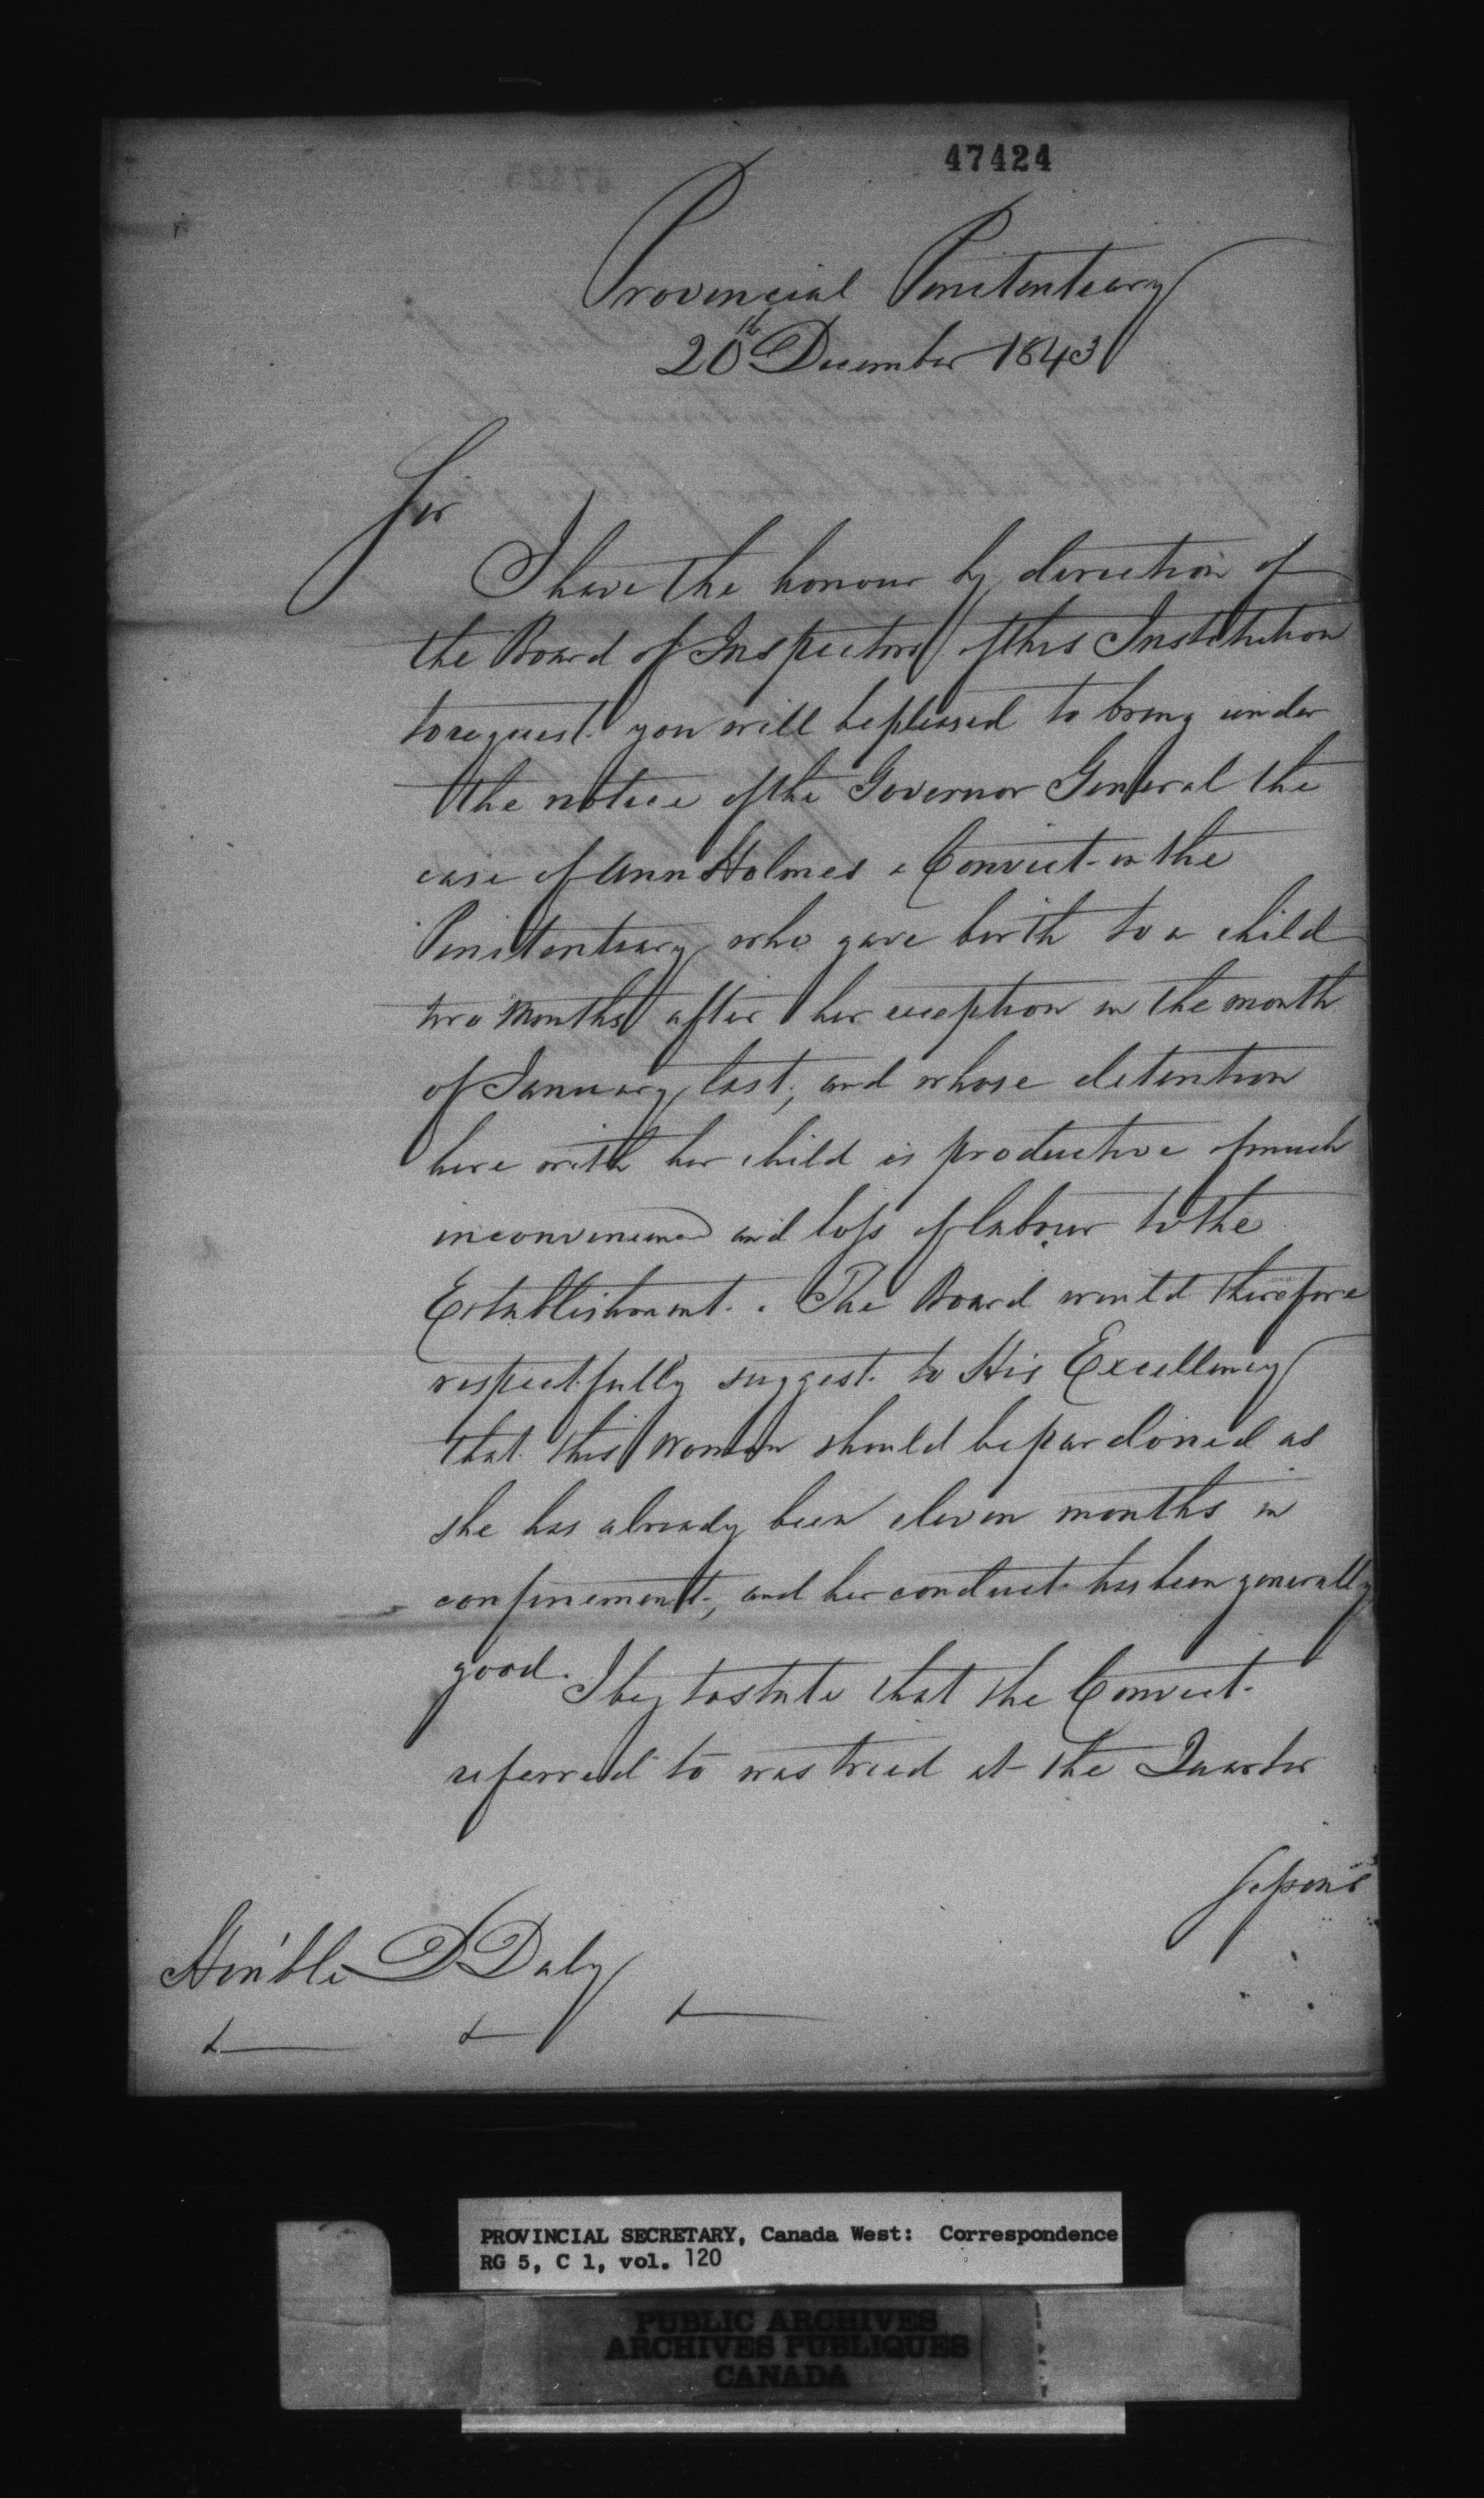 47424
Provincial Penitentiary
20th December 1843
Sir
I have the honour by direction of
the Board of Inspectors of this Institution
to request you will be pleased to bring under
the notice of the Governor General the
case of Ann Holmes a Convict in the
Penitentiary who gave birth to a child
two Months after her reception in the month
of January last; and whose detention
here with her child is productive of much
inconvenience and loss of labour to the
Establishment. The Board would therefore
respectfully suggest to His Excellency
that this Woman should be pardoned as
she has already been eleven months in
confinement, and her conduct has been generally
good.
I beg to state that the Convict
referred to was tried at the Quarter
Sessions
Hon'ble D Daly
PROVINCIAL SECRETARY, Canada West: Correspondence
RG 5, C 1, vol. 120
PUBLIC ARCHIVES
ARCHIVES PUBLIQUES
CANADA